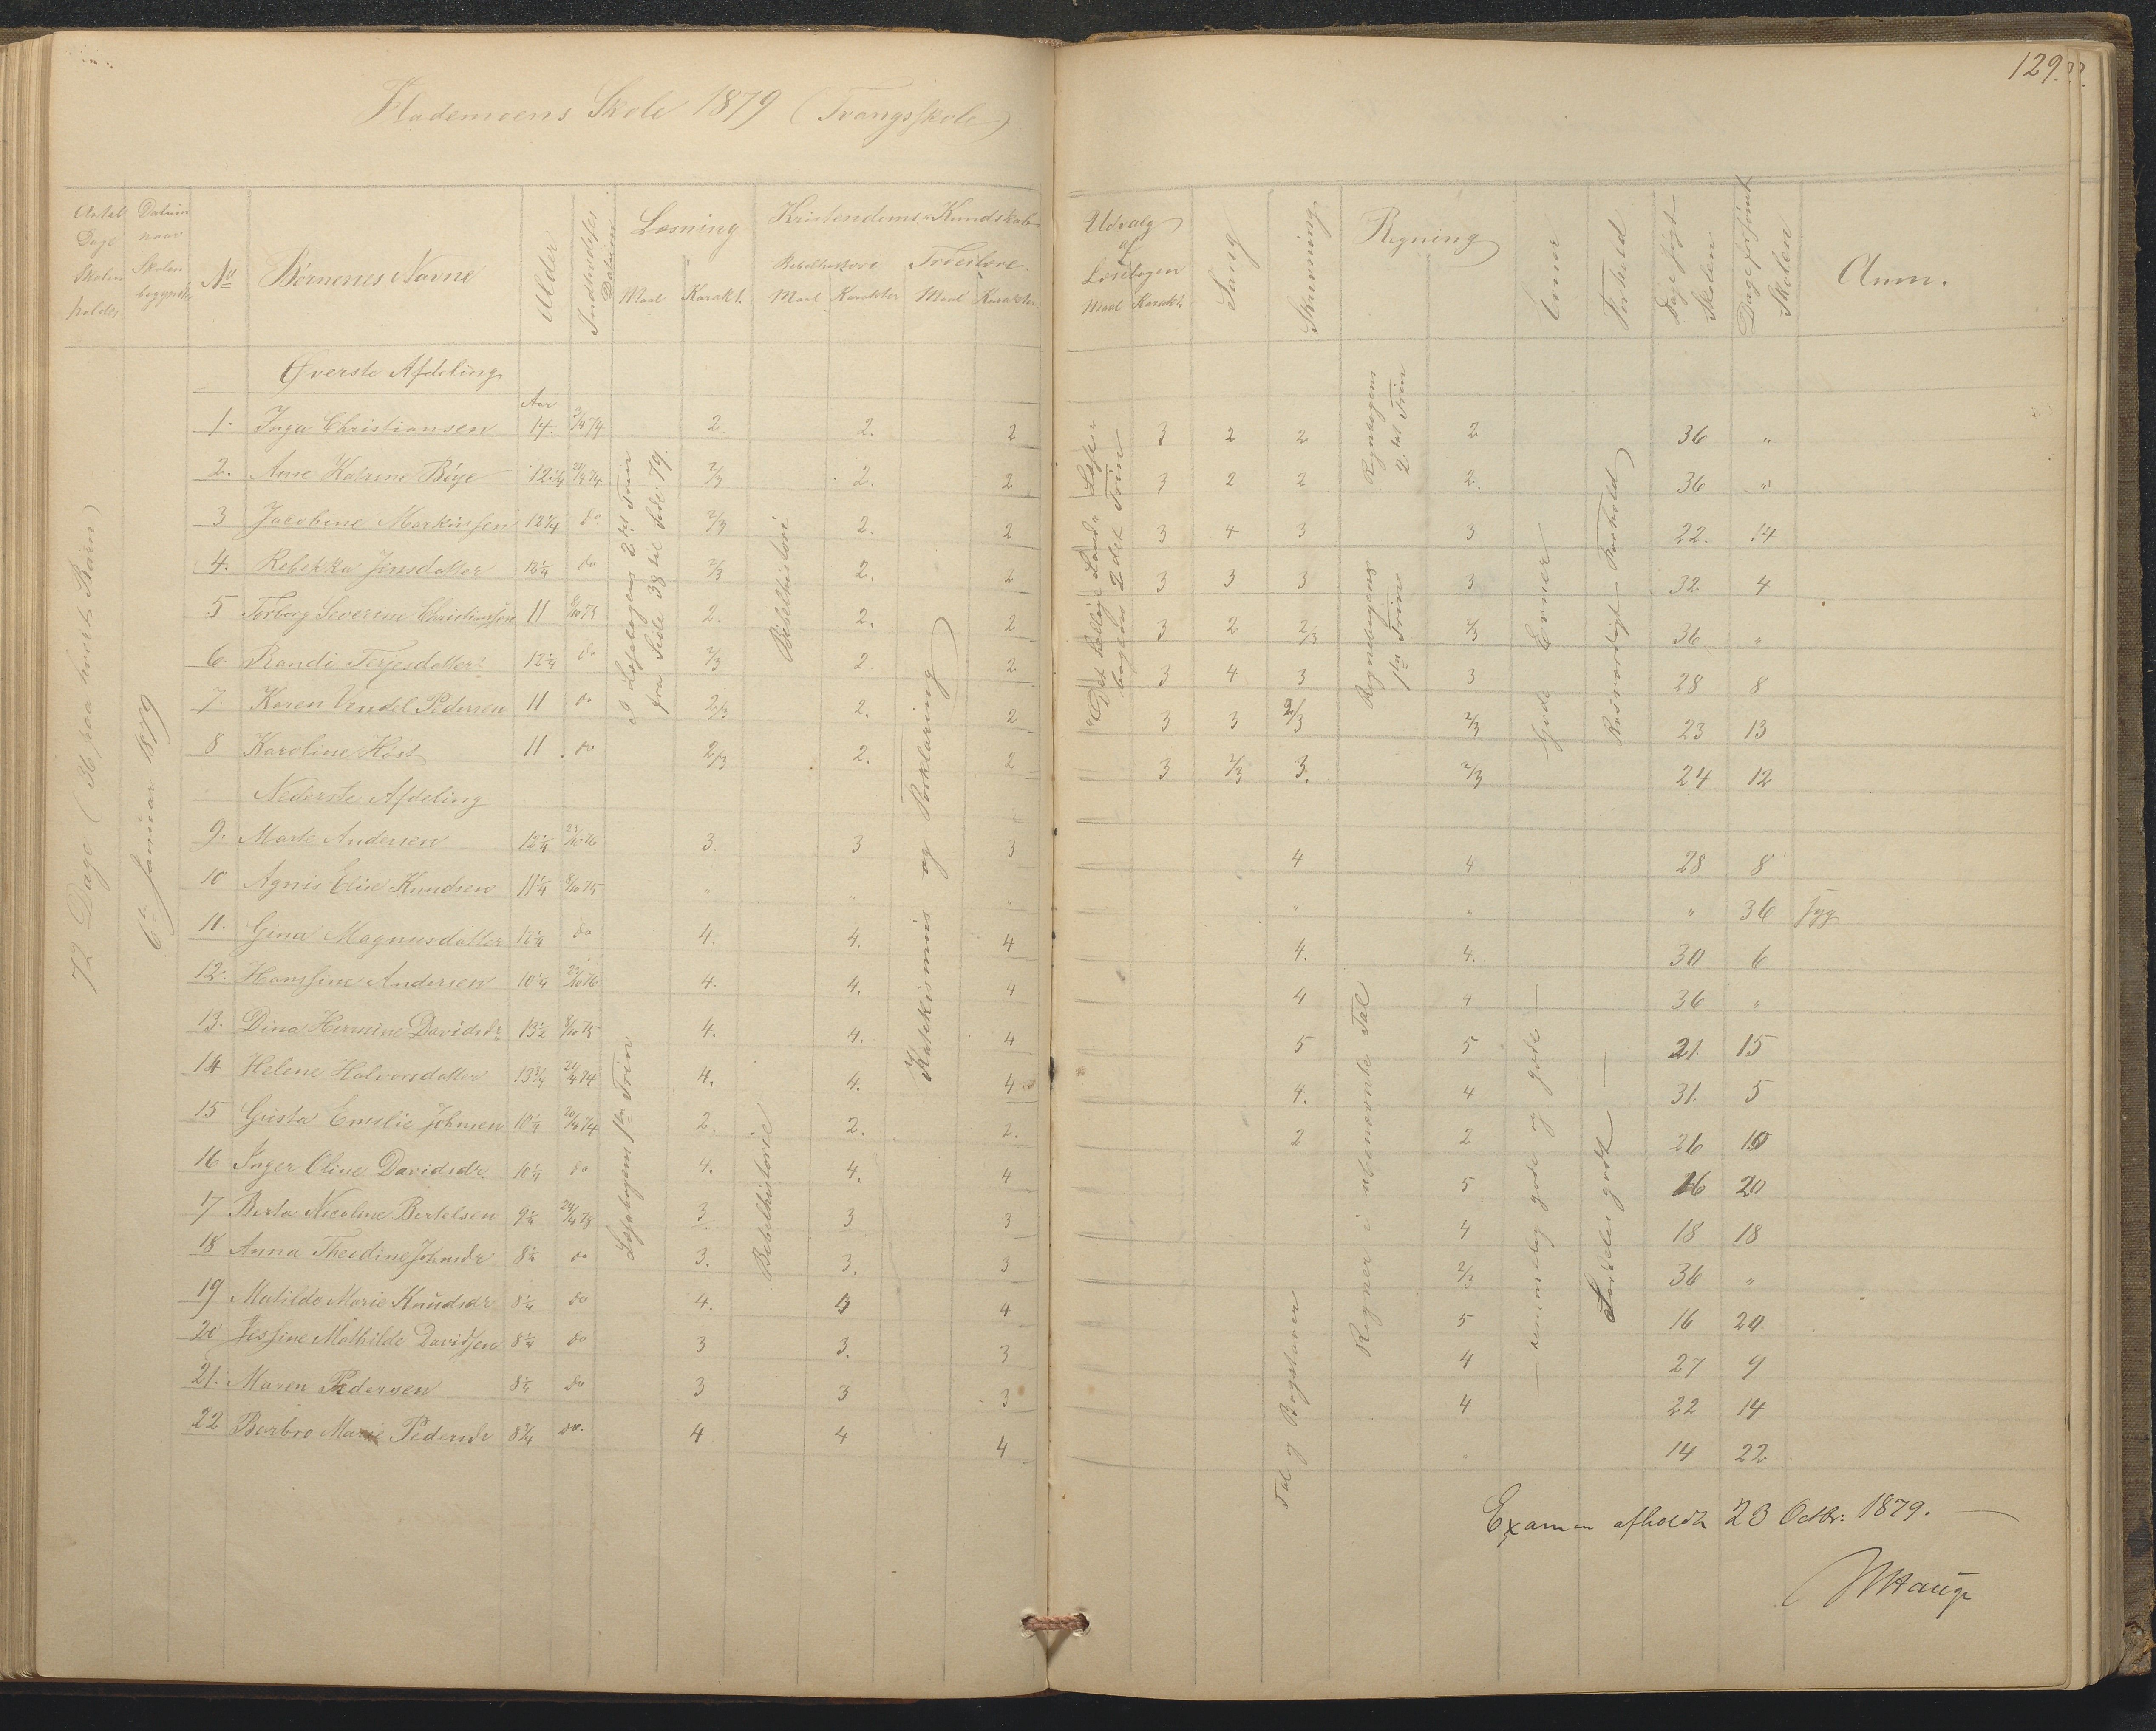 129.
Hademoens Skole 1879 (Tvangsskole)
Antal Dage Skolen holdes
Datum naar Skolen begyndte
No
Børnenes Navne
Alder
Indtrædelses Datum
Læsning
Maal Karakt.
Kristendoms Kundskab
Bibelhistorie
Maal Karakter
Troeslære
Maal Karakter
Udvalg af Læsebogen
Maal Karakt.
Sang
Skrivning
Regning
Evner
Forhold
Dage søgt Skolen
Dage forsømt Skolen
Anm.
72 Dage (36 paa hvert Barn)
6te Januar 1879
Øverste Afdeling
Aar
I Læsebogens 2det Trin fra Side 38 til Side 79.
Bibelhistorie
Katekismus og Forklaring
Læsebogens 2det Trin
Regnebogens 2det Trin
Regnebogens 1ste Trin
Gode Evner
Rosværdigt Forhold
1. Inga Christiansen 14. 2. 2. 2 3 2 2 2 36 "
2. Ane Katrine Bøye 12 1/4 2/3 2. 2 3 2 2 2. 36 "
3 Jacobine Markussen 12 1/4 do 2/3 2. 2 3 4 3 3 22. 14
4. Rebekka Jensdatter 12 1/4 do 2/3 2. 2 3 3 3 3 32 4
5 Torborg Severine Christiansen 11 8/10 75 2. 2. 2 3 2 2/3 2/3 36 "
6. Randi Terjesdatter 12 1/4 do 2/3 2 2 3 4 3 3 28 8
7. Karen Vendel Pedersen 11 do 2/3 2. 2 3 3 2/3 2/3 23 13
8 Karoline Høst 11. do 2/3 2. 2 3 2/3 3. 2/3 24 12
Nederste Afdeling
Læsebogens 1ste Trin
Bibelhistorie
Tal og Bogstaver
Regner i ubenævnte Tal
— temmelig gode og gode —
Særdeles godt —
9. Marte Andersen 12 1/4 23/10 76 3. 3 3 4 4 28 8
10 Agnes Elise Knudsen 11 1/4 8/10 75 " " " " " " 36 syg
11. Gina Magnusdatter 12 1/4 do 4. 4. 4 4. 4. 30 6
12. Hansine Andersen 10 1/4 23/10 76 4. 4. 4 4 4 36 "
13. Dina Hermine Davidsdr 13 1/2 8/10 75 4. 4. 4 5 5 21. 15
14 Helene Halvorsdatter 13 3/4 21/4 74 4. 4. 4 4. 4 31. 5
15 Gusta Emilie Johnsen 10 1/4 20/4 74 2. 2. 2. 2 2 26 10
16 Inger Oline Davidsdr. 10 1/4 do 4. 4. 4 5 16 20
17 Berta Nicoline Bertelsen 9 1/4 3. 3 3 4 18 18
18 Anna Theodine Johnsdr 8 1/4 do 3. 3. 3 2/3 36 "
19 Matilde Marie Knudsdr 8 1/4 do 4. 4 4 5 16 20
20 Jessine Mathilde Davidsen 8 1/4 do 3 3. 3 4 27 9
21. Maren Pedersen 8 1/4 do 3 3 3 4 22 14
22 Barbro Marie Pedersdr 8 3/4 do. 4 4 4 14 22
Examen afholdt 23 Octbr: 1879. —
Hauge